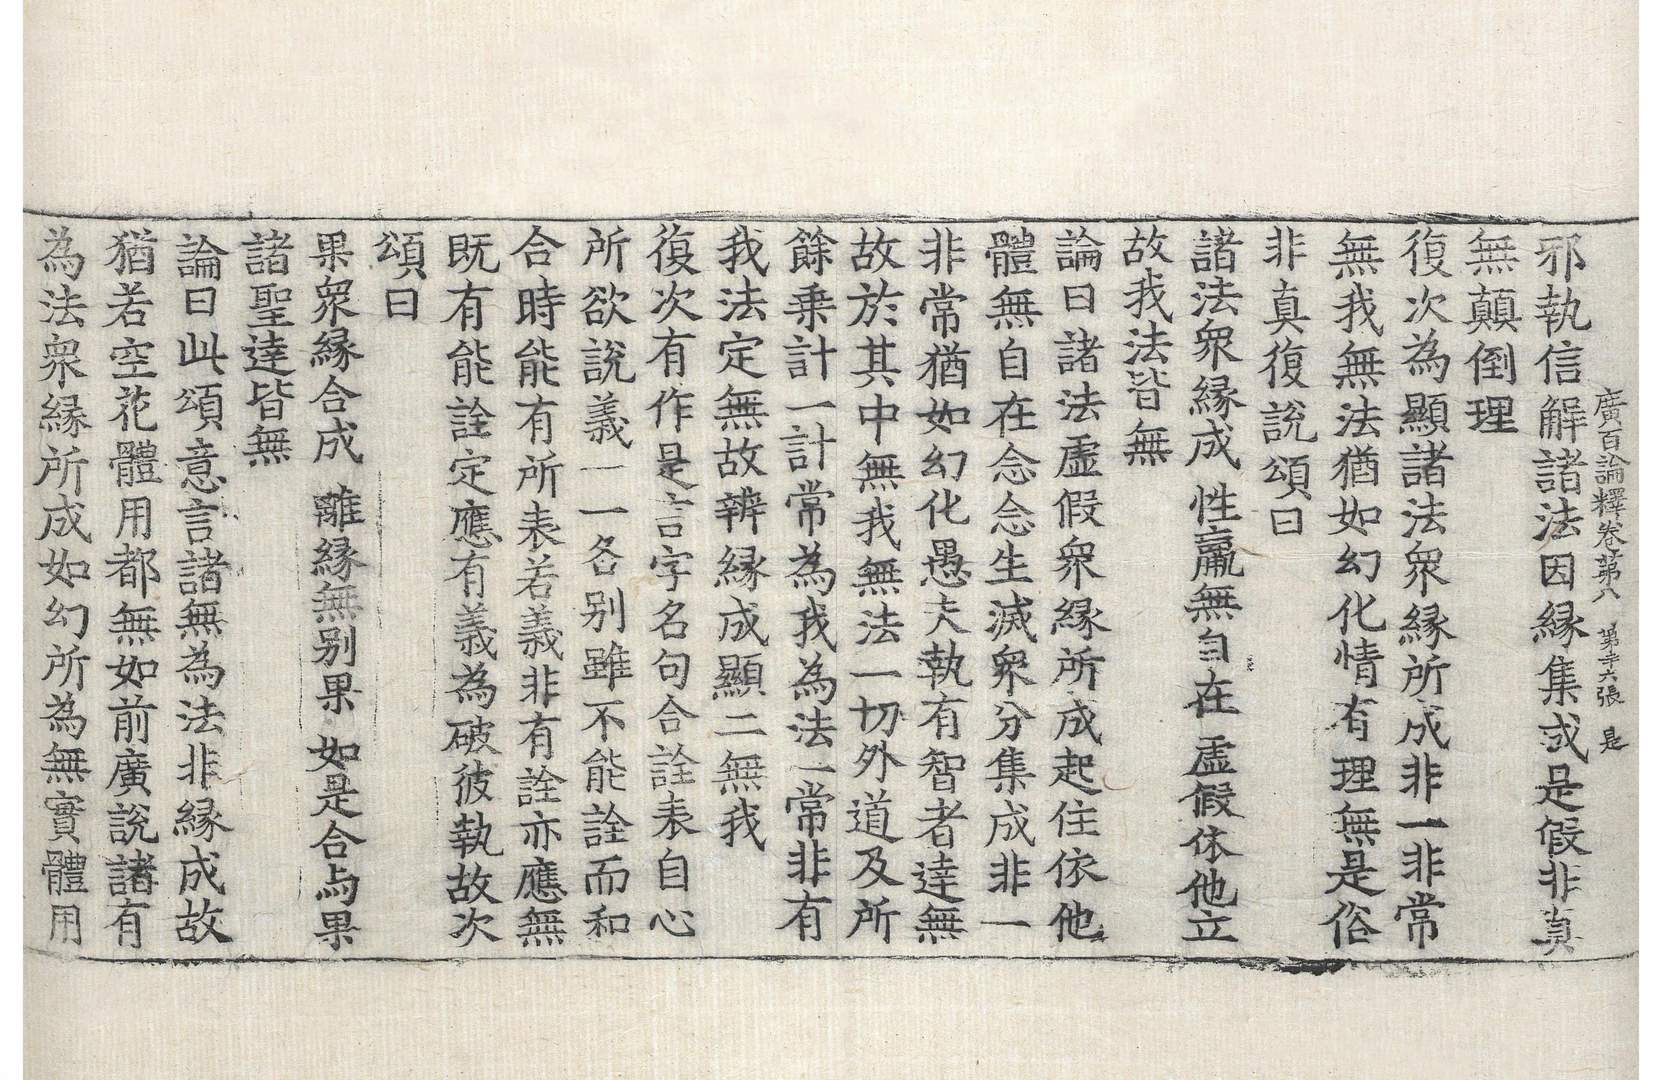 廣百論釋卷第八 第十六張 是
邪執信解諸法因緣集或是假非真
無顛倒理
復次為顯諸法衆緣所成非一非常
無我無法猶如幻化情有理無是俗
非真復說頌曰
諸法衆緣成 性羸無自在 虛假依他立
故我法皆無
論曰諸法虛假衆緣所成起住依他
體無自在念念生滅衆分集成非一
非常猶如幻化愚夫執有智者達無
故於其中無我無法一切外道及所
餘乘計一計常為我為法一常非有
我法定無故辨緣成顯二無我
復次有作是言字名句合詮表自心
所欲說義一一各別雖不能詮而和
合時能有所表若義非有詮亦應無
既有能詮定應有義為破彼執故次
頌曰
果衆緣合成 離緣無别果 如是合与果
諸聖達皆無
論曰此頌意言諸無為法非緣成故
猶若空花體用都無如前廣說諸有
為法衆緣所成如幻所為無實體用